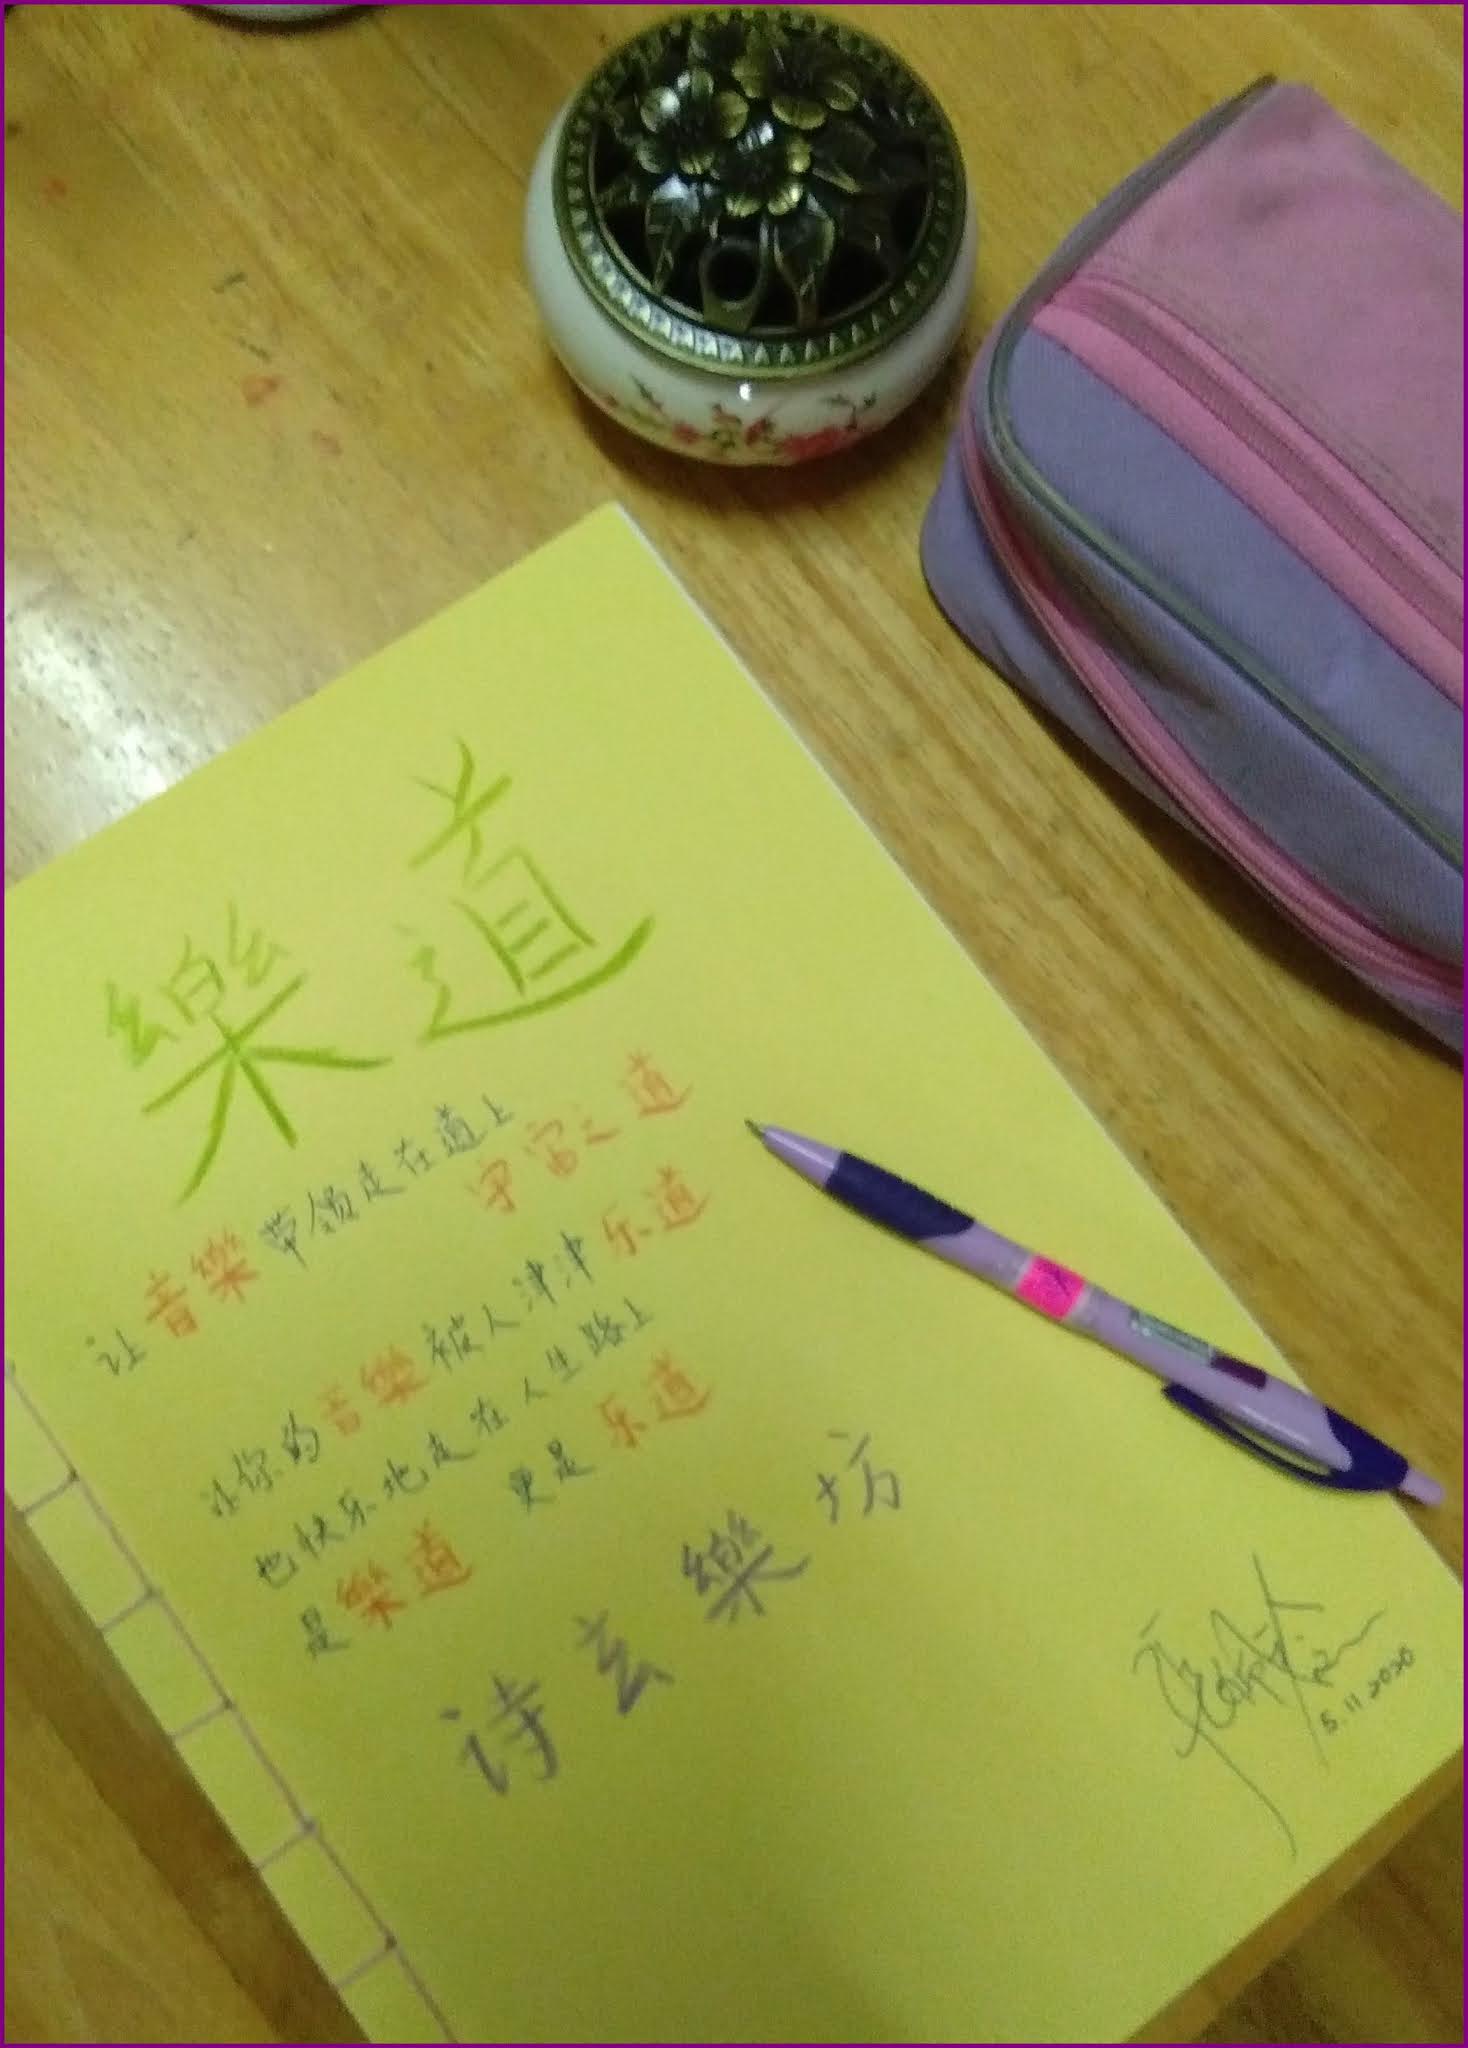 樂道
让音樂带领走在道上
宇宙之道
让你的音樂被人津津乐道
也快乐地走在人生路上
是樂道 更是乐道
诗玄樂坊
5.11.2020